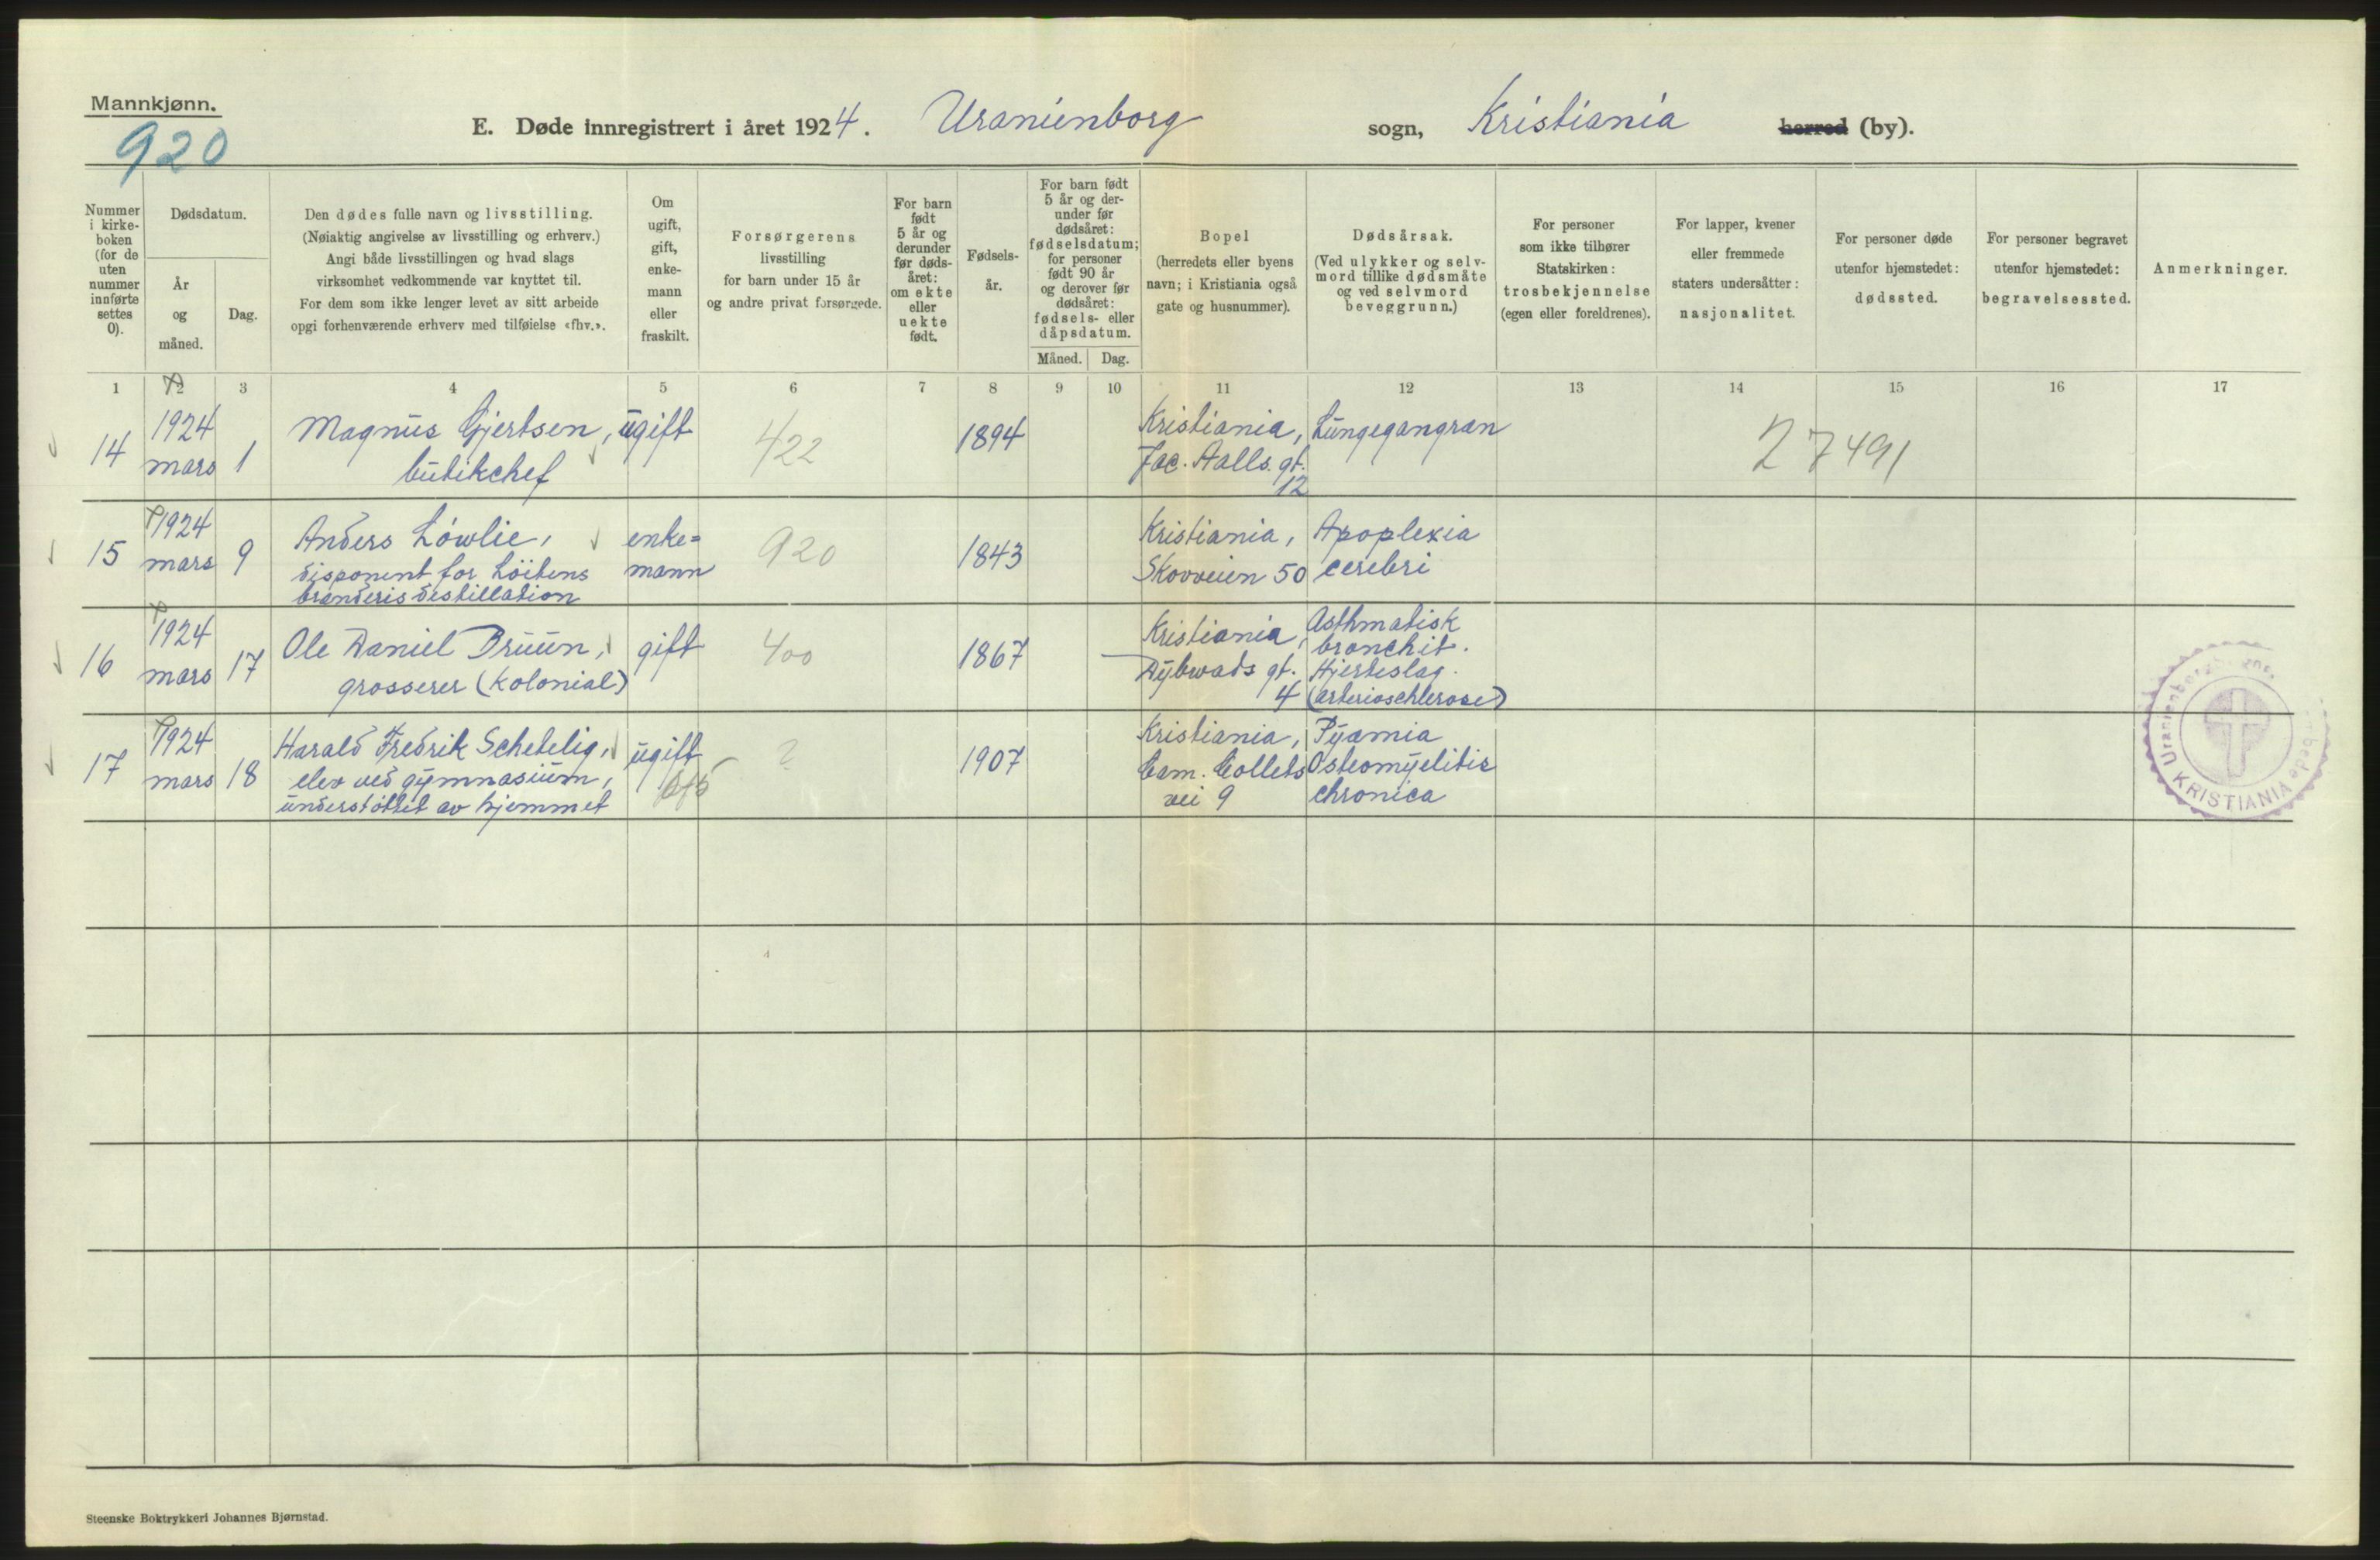 Mannkjønn.
920
E. Døde innregistrert i året 1924. Uranienborg sogn, Kristiania herred (by).
Nummer i kirke-boken (for de uten nummer innførte settes 0).
Dødsdatum.
År og måned.
Dag.
Den dødes fulle navn og livsstilling.
(Nøiaktig angivelse av livsstilling og erhverv.)
Angi både livsstillingen og hvad slags
virksomhet vedkommende var knyttet til.
For dem som ikke lenger levet av sitt arbeide
opgi forhenværende erhverv med tilføielse «fhv.».
Om ugift, gift, enke-mann eller fraskilt.
Forsørgerens
livsstilling
for barn under 15 år
og andre privat forsørgede.
For barn født 5 år og derunder før døds-året: om ekte eller uekte født.
Fødsels-år.
For barn født 5 år og der-under før dødsåret: fødselsdatum; for personer født 90 år og derover før dødsåret: fødsels- eller dåpsdatum.
Måned. Dag.
Bopel
(herredets eller byens
navn; i Kristiania også
gate og husnummer).
Dødsårsak.
(Ved ulykker og selv-
mord tillike dødsmåte
og ved selvmord
beveggrunn.)
For personer
som ikke tilhører
Statskirken:
trosbekjennelse
(egen eller foreldrenes).
For lapper, kvener
eller fremmede
staters undersåtter:
nasjonalitet.
For personer døde
utenfor hjemstedet:
dødssted.
For personer begravet
utenfor hjemstedet:
begravelsessted.
Anmerkninger.
1 2 3 4 5 6 7 8 9 10 11 12 13 14 15 16 17
14 1924 mars 1 Magnus Gjertsen, butikchef ugift 422 1894 Kristiania, Jac. Aalls gt. 12 Lungegangræn 27491
15 1924 mars 9 Anders Løwlie, disponent for Löitens brænderis destillation enke=mann 920 1843 Kristiania, Skovveien 50 Apoplexia cerebri
16 1924 mars 17 Ole Daniel Bruun, grosserer (kolonial) gift 400 1867 Kristiania, Dybwads gt. 4 Asthmatisk bronchit. Hjerteslag. (arterioschlerose)
17 1924 mars 18 Harald Fredrik Schetelig, elev ved gymnasium, understøttet av hjemmet ugift ? 1907 Kristiania, Cam. Colletts vei 9 Pyæmia Osteomyelitis chronica
Uranienborg KRISTIANIA
Steenske Boktrykkeri Johannes Bjørnstad.